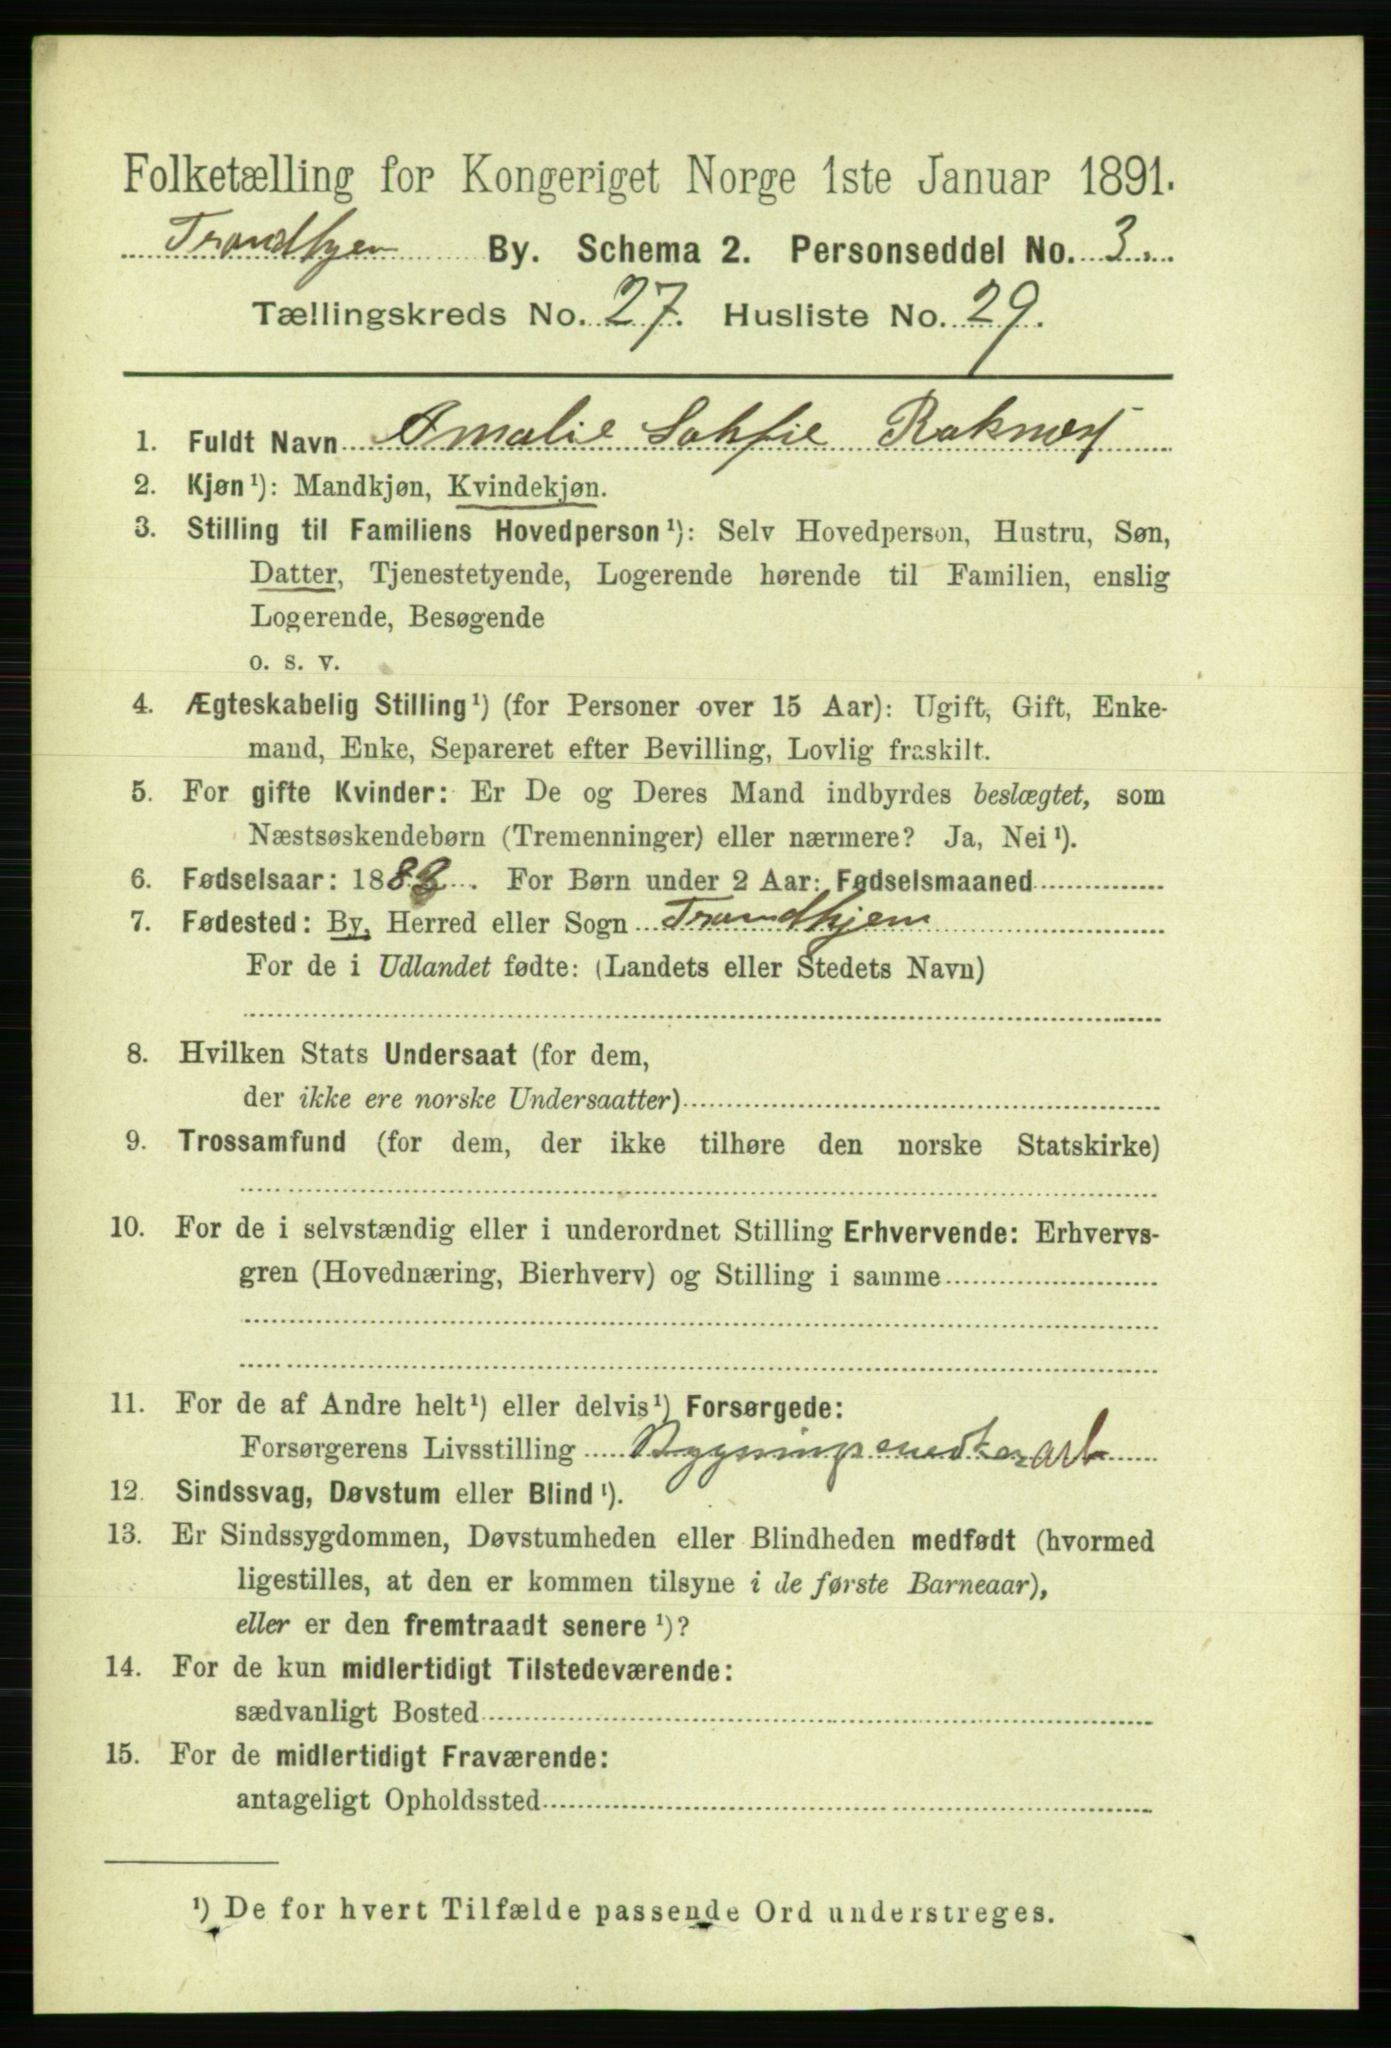 Folketælling for Kongeriget Norge 1ste Januar 1891.
Trondhjem By. Schema 2. Personseddel No. 3.
Tællingskreds No. 27. Husliste No. 29.
1. Fuldt Navn Amalie Sophie Raknæs
2. Kjøn ¹): Mandkjøn, Kvindekjøn.
3. Stilling til Familiens Hovedperson ¹): Selv Hovedperson, Hustru, Søn,
Datter, Tjenestetyende, Logerende hørende til Familien, enslig
Logerende, Besøgende
o. s. v.
4. Ægteskabelig Stilling ¹) (for Personer over 15 Aar): Ugift, Gift, Enke-
mand, Enke, Separeret efter Bevilling, Lovlig fraskilt.
5. For gifte Kvinder: Er De og Deres Mand indbyrdes beslægtet, som
Næstsøskendebørn (Tremenninger) eller nærmere? Ja, Nei ¹).
6. Fødselsaar: 188 . For Børn under 2 Aar: Fødselsmaaned
7. Fødested: By, Herred eller Sogn Trondhjem
For de i Udlandet fødte: (Landets eller Stedets Navn)
8. Hvilken Stats Undersaat (for dem,
der ikke ere norske Undersaatter)
9. Trossamfund (for dem, der ikke tilhøre den norske Statskirke)
10. For de i selvstændig eller i underordnet Stilling Erhvervende: Erhvervs-
gren (Hovednæring, Bierhverv) og Stilling i samme
11. For de af Andre helt ¹) eller delvis ¹) Forsørgede:
Forsørgerens Livsstilling arb
12. Sindssvag, Døvstum eller Blind ¹).
13. Er Sindssygdommen, Døvstumheden eller Blindheden medfødt (hvormed
ligestilles, at den er kommen tilsyne i de første Barneaar),
eller er den fremtraadt senere ¹)?
14. For de kun midlertidigt Tilstedeværende:
sædvanligt Bosted
15. For de midlertidigt Fraværende:
antageligt Opholdssted
¹) De for hvert Tilfælde passende Ord understreges.